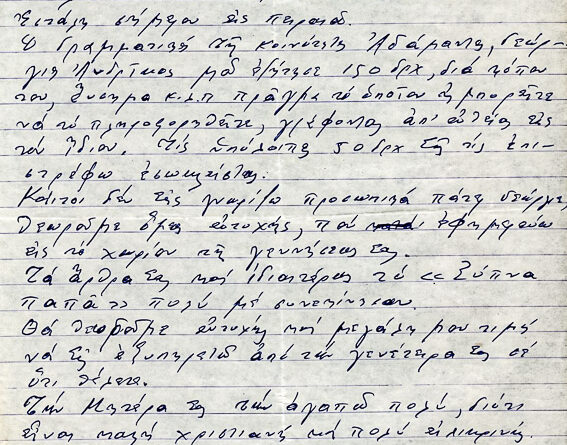 Ἐστάλη σήμερον εἰς Πειραιᾶ.
Ὁ Γραμματικὸς τῆς κοινότητος Ἀδάμαντος, Γεώρ-
γιος Ἀνδρίκος μοῦ ἐζήτησε 150 δρχ, διὰ κόπον
του, ἔνσημα κ.λ.π πρᾶγμα τὸ ὁποῖον ἠμπορεῖτε
νὰ τὸ πληροφορηθεῖτε, γράφοντας ἀπ' εὐθείας εἰς
τὸν ἴδιον. Τὶς ὑπόλοιπες 50 δρχ Σᾶς τὶς ἐπι-
στρέφω ἐσωκλείστως.
Καίτοι δὲν Σᾶς γνωρίζω προσωπικὰ πάτερ Γεώργιε,
θεωροῦμε ὅμως εὐτυχής, ποὺ ἐφημερεύω
εἰς τὸ χωρίον τῆς γεννήσεώς Σας.
Τὰ ἄρθρα Σας καὶ ἰδιαιτέρως τὸ << Ξύπνα
παπᾶ >> πολὺ μὲ συνεκίνησαν.
Θὰ θεωροῦμε εὐτυχὴς καὶ μεγάλη μου τιμὴ
νὰ Σᾶς ἐξυπηρετῶ ἀπὸ τὴν γενέτειρά Σας σὲ
ὅτι θέλετε.
Τὴν Μητέρα Σας τὴν ἀγαπῶ πολύ, διότι
εἶναι καλὴ χριστιανὴ καὶ πολὺ εἰλικρινής.